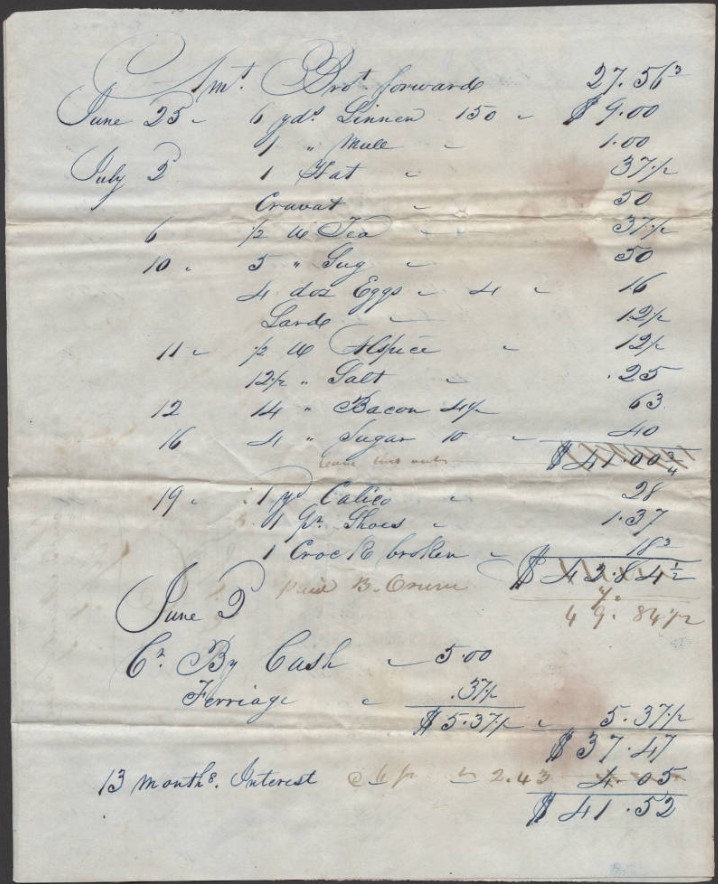 Amt. Brot forward 27.56 3
June 25 " 6 yds Linnen 150 " $ 9.00
1 " Mull " 1.00
July 2 1 Hat " 37 1/2
Cravat " 50
6 1/2 lb Tea " 37 1/2
10 " 5 " Sug " 50
4 doz Eggs " 4 " 16
Lard " 12 1/2
11 " 1/2 lb Alspice " 12 1/2
12 1/2 " Salt " .25
12 14 " Bacon 4 1/2 63
16 4 " Sugar 10 " 40
$ 41.00 3/4
19 " 1 yd Calico " 28
1 pr Shoes " 1.37
1 Crock broken " 18 3
$ 42.84 1/2
paid B. Crum
49.84 1/2
June 2
Cr By Cash " 5.00
Ferriage " .37 1/2
$ 5.37 1/2 " 5.37 1/2
$ 37.47
13 months. Interest 2.43 4.05
$ 41.52